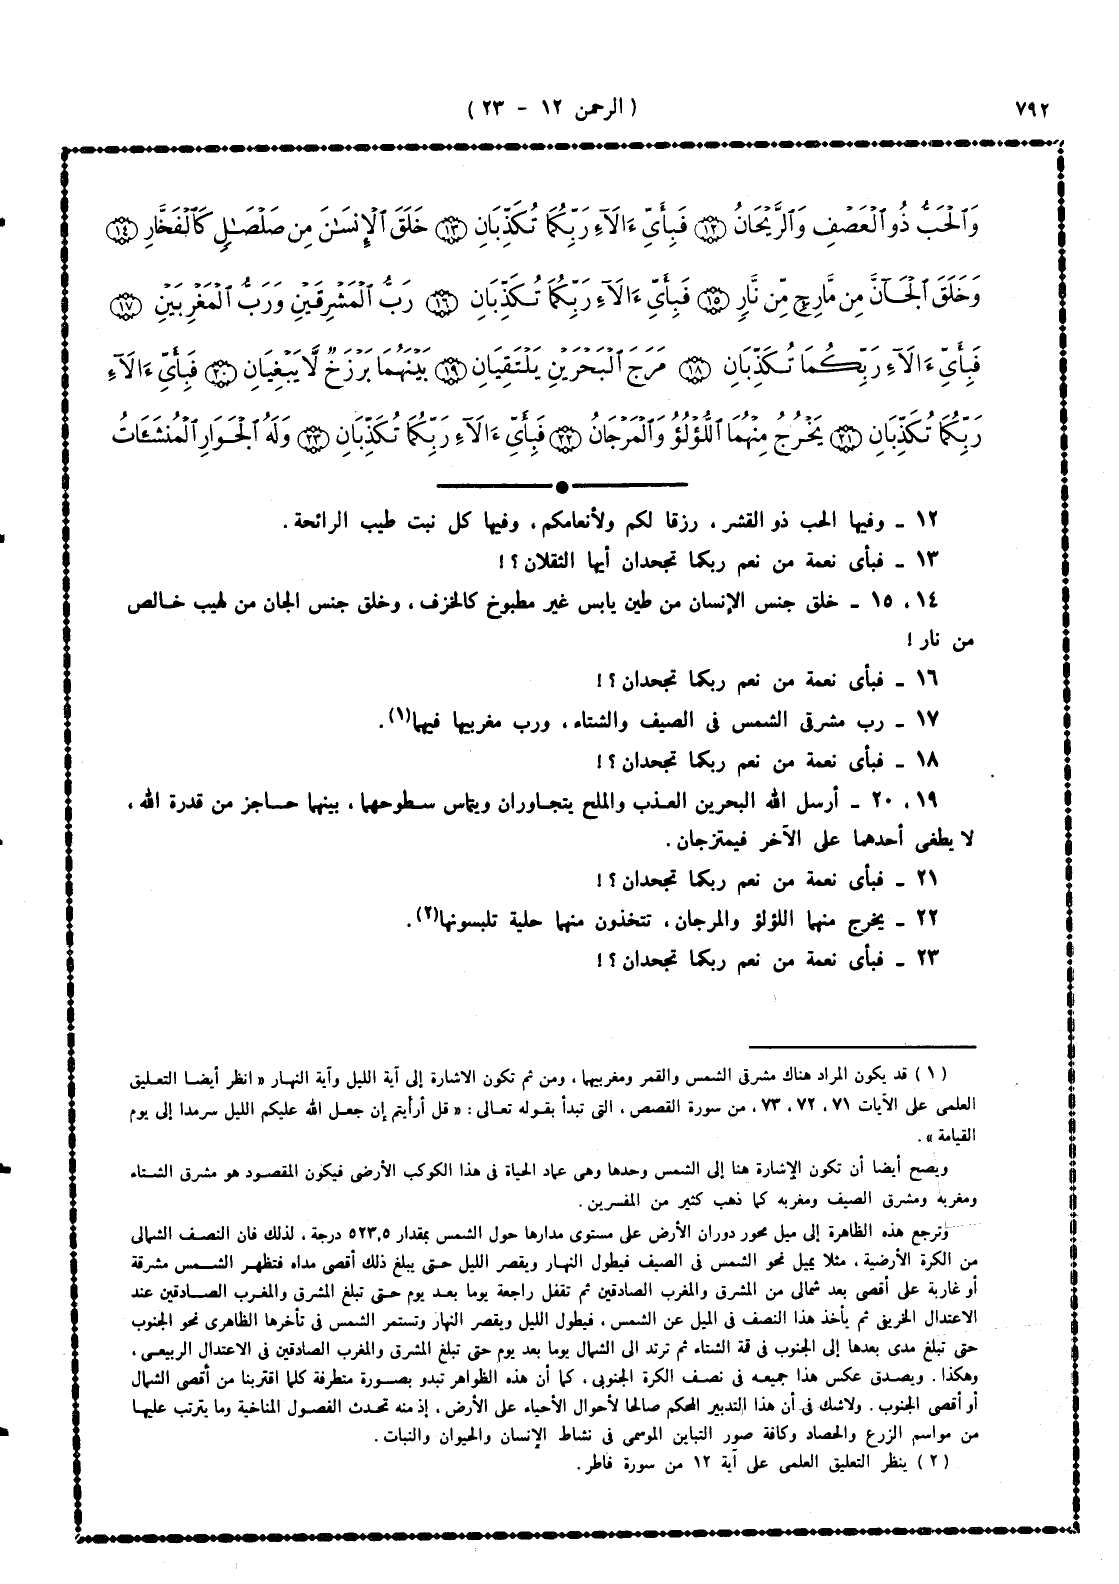 ٧٩٢
( الرحمن ١٢ - ٢٣ )
وَٱلۡحَبُّ ذُو ٱلۡعَصۡفِ وَٱلرَّيۡحَانُ ﴿١٢﴾ فَبِأَيِّ ءَالَآءِ رَبِّكُمَا تُكَذِّبَانِ ﴿١٣﴾ خَلَقَ ٱلۡإِنسَٰنَ مِن صَلۡصَٰلٖ كَٱلۡفَخَّارِ ﴿١٤﴾
وَخَلَقَ ٱلۡجَآنَّ مِن مَّارِجٖ مِّن نَّارٖ ﴿١٥﴾ فَبِأَيِّ ءَالَآءِ رَبِّكُمَا تُكَذِّبَانِ ﴿١٦﴾ رَبُّ ٱلۡمَشۡرِقَيۡنِ وَرَبُّ ٱلۡمَغۡرِبَيۡنِ ﴿١٧﴾
فَبِأَيِّ ءَالَآءِ رَبِّكُمَا تُكَذِّبَانِ ﴿١٨﴾ مَرَجَ ٱلۡبَحۡرَيۡنِ يَلۡتَقِيَانِ ﴿١٩﴾ بَيۡنَهُمَا بَرۡزَخٞ لَّا يَبۡغِيَانِ ﴿٢٠﴾ فَبِأَيِّ ءَالَآءِ
رَبِّكُمَا تُكَذِّبَانِ ﴿٢١﴾ يَخۡرُجُ مِنۡهُمَا ٱللُّؤۡلُؤُ وَٱلۡمَرۡجَانُ ﴿٢٢﴾ فَبِأَيِّ ءَالَآءِ رَبِّكُمَا تُكَذِّبَانِ ﴿٢٣﴾ وَلَهُ ٱلۡجَوَارِ ٱلۡمُنشَـَٔاتُ
١٢ ــ وفيها الحب ذو القشر ، رزقا لكم ولأنعامكم ، وفيها كل نبت طيب الرائحة .
١٣ ــ فبأى نعمة من نعم ربكما تجحدان أيها الثقلان ؟ !
١٤ ، ١٥ ــ خلق جنس الإنسان من طين يابس غير مطبوخ كالخزف ، وخلق جنس الجان من لهيب خالص
من نار !
١٦ ــ فبأى نعمة من نعم ربكما تجحدان ؟ !
١٧ ــ رب مشرقى الشمس فى الصيف والشتاء ، ورب مغربيها فيهما(١) .
١٨ ــ فبأى نعمة من نعم ربكما تجحدان ؟ !
١٩ ، ٢٠ ــ أرسل الله البحرين العذب والملح يتجاوران ويتماس سطوحهما ، بينهما حاجز من قدرة الله ،
لا يطغى أحدهما على الآخر فيمتزجان .
٢١ ــ فبأى نعمة من نعم ربكما تجحدان ؟ !
٢٢ ــ يخرج منهما اللؤلؤ والمرجان ، تتخذون منهما حلية تلبسونها(٢) .
٢٣ ــ فبأى نعمة من نعم ربكما تجحدان ؟ !
( ١ ) قد يكون المراد هناك مشرقى الشمس والقمر ومغربيهما ، ومن ثم تكون الاشارة إلى آية الليل وآية النهار « انظر أيضا التعليق
العلمى على الآيات ٧١ ، ٧٢ ، ٧٣ ، من سورة القصص ، التى تبدأ بقوله تعالى : « قل أرأيتم إن جعل الله عليكم الليل سرمدا إلى يوم
القيامة » .
ويصح أيضا أن تكون الإشارة هنا إلى الشمس وحدها وهى عماد الحياة فى هذا الكوكب الأرضى فيكون المقصود هو مشرق الشتاء
ومغربه ومشرق الصيف ومغربه كما ذهب كثير من المفسرين .
وترجع هذه الظاهرة إلى ميل محور دوران الأرض على مستوى مدارها حول الشمس بمقدار ٥٢٣,٥ درجة ، لذلك فان النصف الشمالى
من الكرة الأرضية ، مثلا يميل نحو الشمس فى الصيف فيطول النهار ويقصر الليل حتى يبلغ ذلك أقصى مداه فتظهر الشمس مشرقة
أو غاربة على أقصى بعد شمالى من المشرق والمغرب الصادقين ثم تقفل راجعة يوما بعد يوم حتى تبلغ المشرق والمغرب الصادقين عند
الاعتدال الخريفى ثم يأخذ هذا النصف فى الميل عن الشمس ، فيطول الليل ويقصر النهار وتستمر الشمس فى تأخرها الظاهرى نحو الجنوب
حتى تبلغ مدى بعدها إلى الجنوب فى قة الشتاء ثم ترتد الى الشمال يوما بعد يوم حتى تبلغ المشرق والمغرب الصادقين فى الاعتدال الربيعى ،
وهكذا . ويصدق عكس هذا جميعه فى نصف الكرة الجنوبى ، كما أن هذه الظواهر تبدو بصورة متطرفة كلما اقتربنا من أقصى الشمال
أو أقصى الجنوب . ولاشك فى أن هذا التدبير المحكم صالحا لأحوال الأحياء على الأرض ، إذ منه تحدث الفصول المناخية وما يترتب عليها
من مواسم الزرع والحصاد وكافة صور التباين الموسمى فى نشاط الإنسان والحيوان والنبات .
( ٢ ) ينظر التعليق العلمى على آية ١٢ من سورة فاطر .